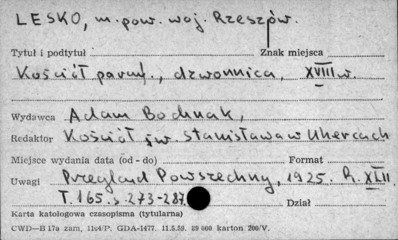 LESKO, m. pow. woj. Rzeszów.
Tytuł i podtytuł Znak miejsca
Kościół paraf., dzwonnica, XVIII w.
Wydawca Adam Bochnak,
Redaktor Kościół św. Stanisława w Uhercach
Miejsce wydania data (od - do) Format
Uwagi Przegląd Powszechny, 1925. R. XLII
T. 165. s. 273-287. Dział
Karta katologowa czasopisma (tytularna)
CWD—B 17a zam. 11c4/P. GDA-1477. 11.5.59. 89 000 karton 200/V.